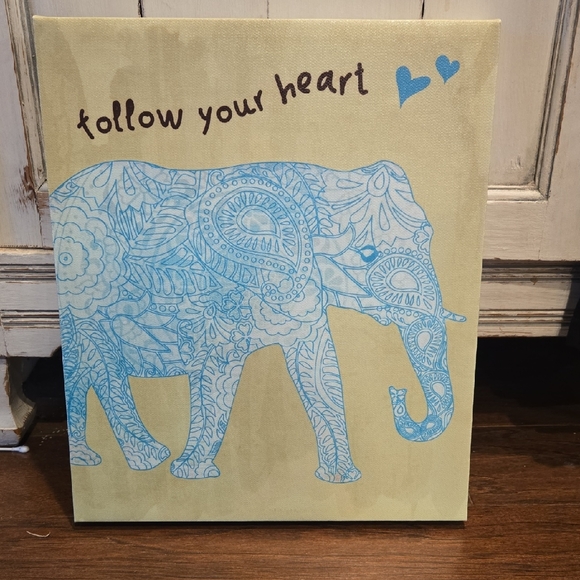 follow your heart